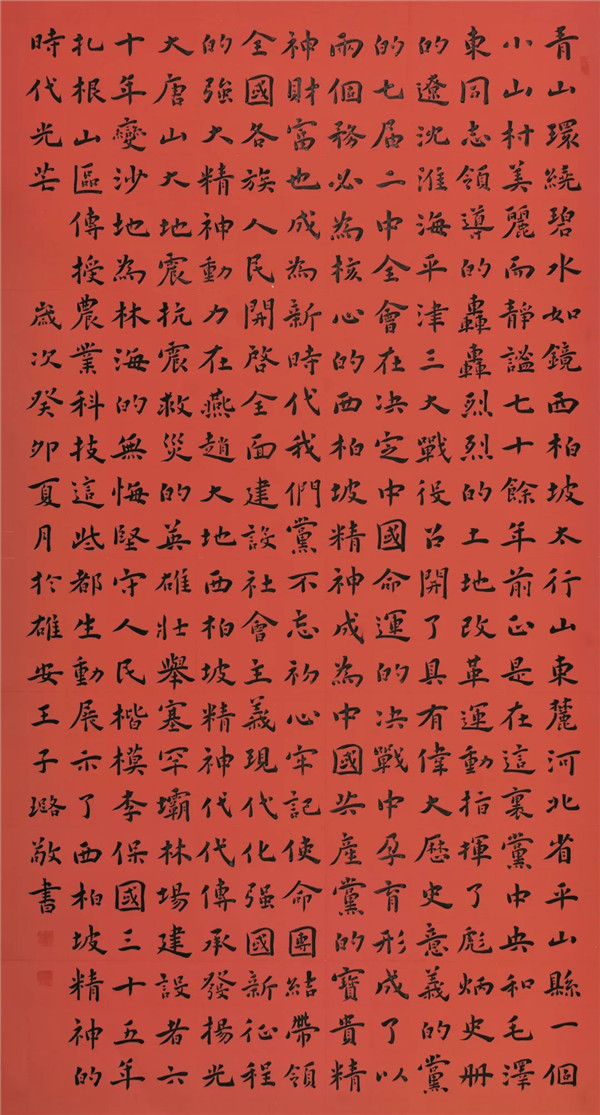 青山環繞碧水如鏡西柏坡太行山東麓河北省平山縣一個
小山村美麗而靜謐七十餘年前正是在這裏黨中央和毛澤
東同志領導的轟轟烈烈的土地改革運動指揮了彪炳史册
的遼沈淮海平津三大戰役召開了具有偉大歷史意義的黨
的七届二中全會在决定中國命運的决戰中孕育形成了以
兩個務必為核心的西柏坡精神成為中國共產黨的寶貴精
神財富也成為新時代我們黨不忘初心牢記使命團結帶領
全國各族人民開啓全面建設社會主義現代化强國新征程
的強大精神動力在燕趙大地西柏坡精神代代傳承發揚光
大唐山大地震抗震救災的英雄壯舉塞罕壩林場建設者六
十年變沙地為林海的無悔堅守人民楷模李保國三十五年
扎根山區傳授農業科技這些都生動展示了西柏坡精神的
時代光芒 歲次癸卯夏月於雄安王子璐敬書